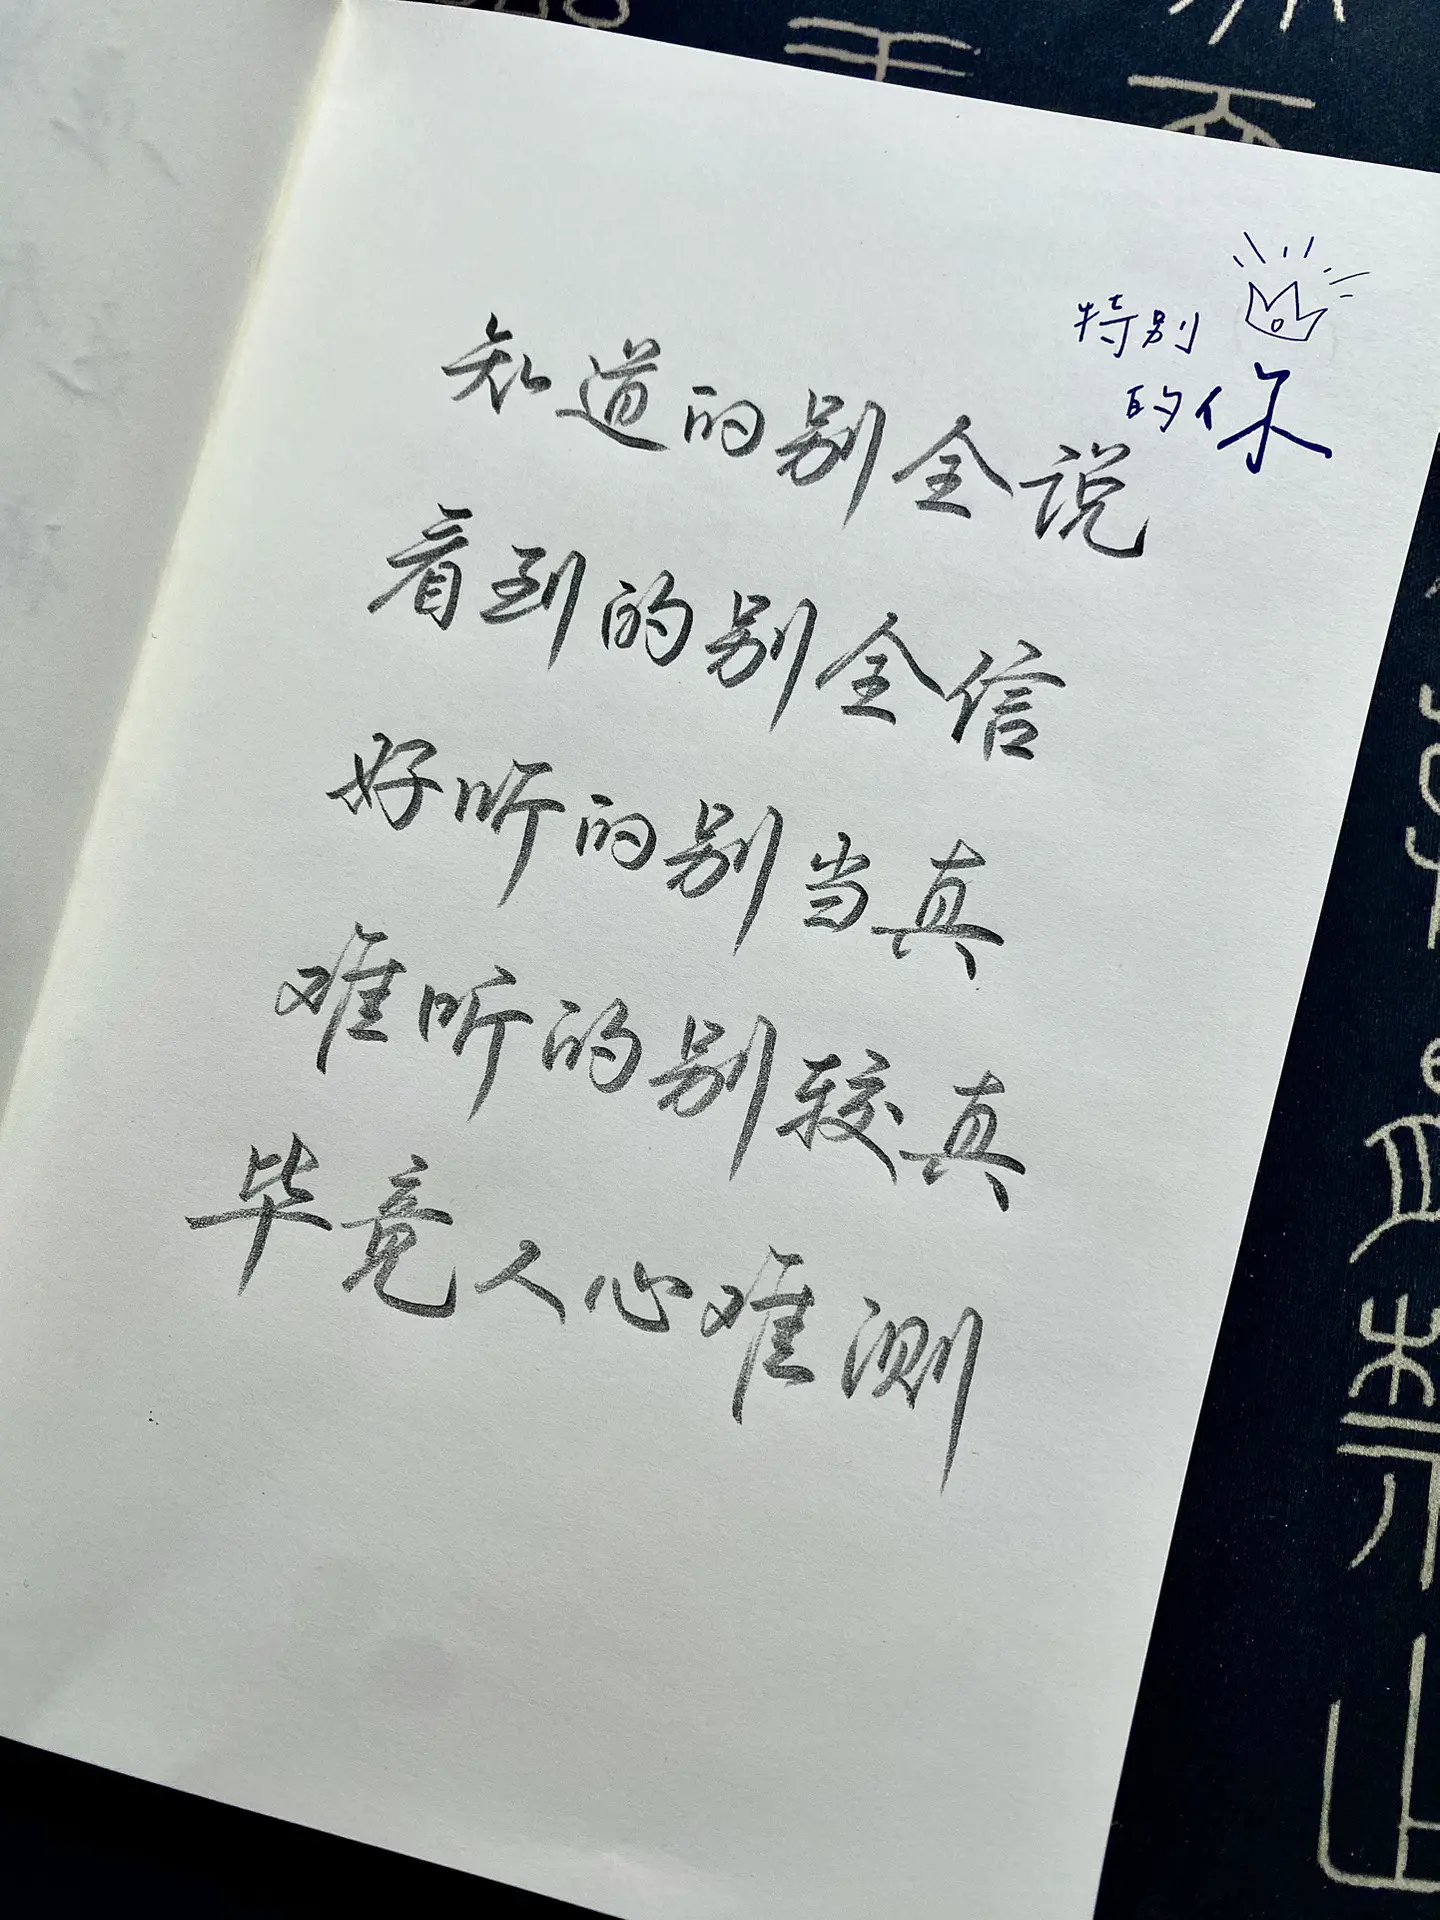 特别
的你
知道的别全说
看到的别全信
好听的别当真
难听的别较真
毕竟人心难测